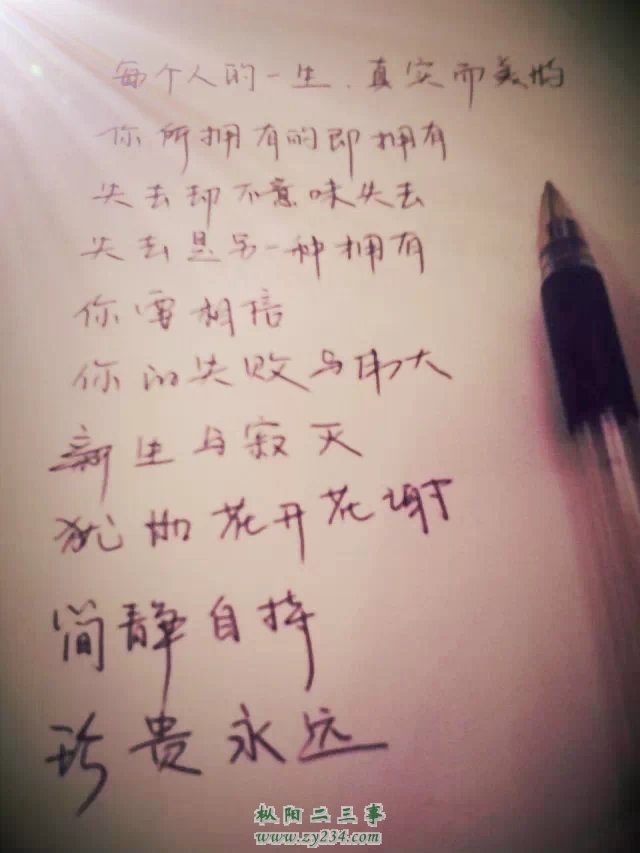 每个人的一生、真实而美的
你所拥有的即拥有
失去却不意味失去
失去是另一种拥有
你要相信
你的失败与伟大
新生与寂灭
犹如花开花谢
简静自持
珍贵永远
枞阳二三事
www.zy234.com